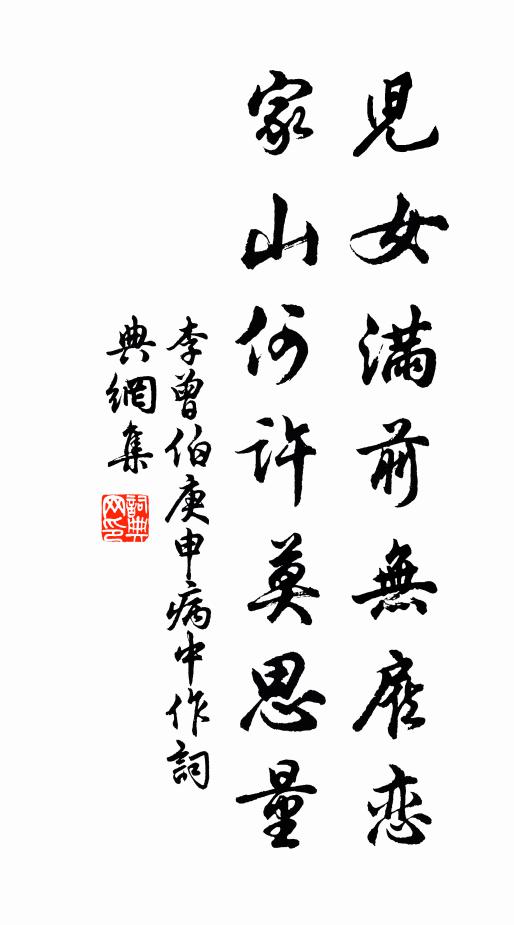 兒女滿前無廐恋
家山何許莫思量
李曾伯庚申病中作詞
典網集
詞典網印